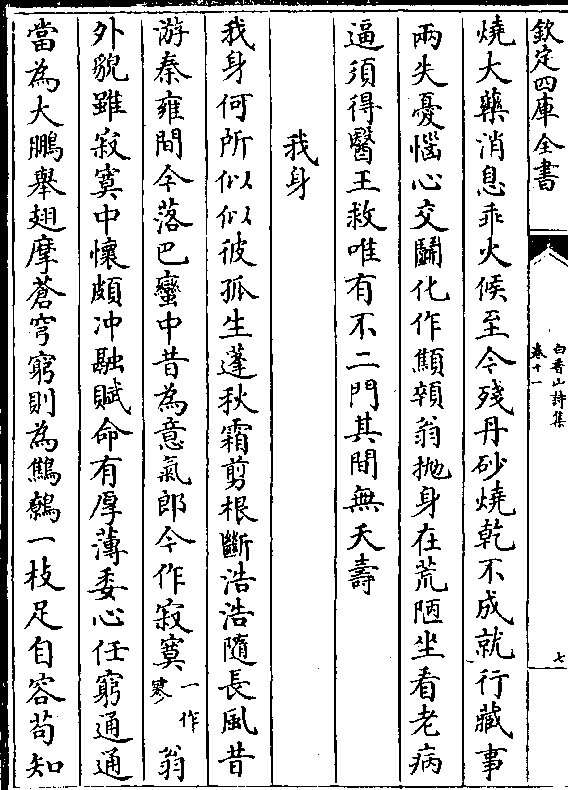 欽定四庫全書
白香山詩集
卷十一
七
燒大藥消息乖火候至今殘丹砂燒乾不成就行藏事
兩失憂惱心交鬭化作顦顇翁抛身在荒陋坐看老病
逼須得醫王救唯有不二門其間無夭壽
我身
我身何所似似彼孤生蓬秋霜剪根斷浩浩隨長風昔
游秦雍間今落巴蠻中昔為意氣郎今作寂寞一作寥翁
外貌雖寂寞中懷頗冲融賦命有厚薄委心任窮通通
當為大鵬舉翅摩蒼穹窮則為鷦鷯一枝足自容苟知